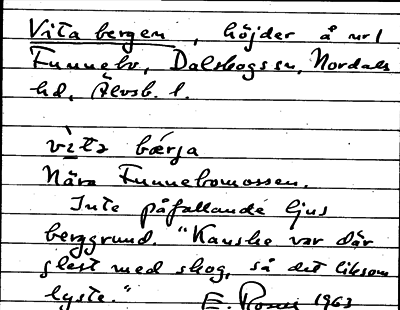 Vita bergen, höjder å nr 1
Funnebo, Dalskogs sn, Nordals
hd, Älvsb. l.
vìta bærja
Nära Funnebomossen.
Inte påfallande ljus
berggrund. "Kanske var där
glest med skog, så det liksom
lyste."
E. Rosell 1963